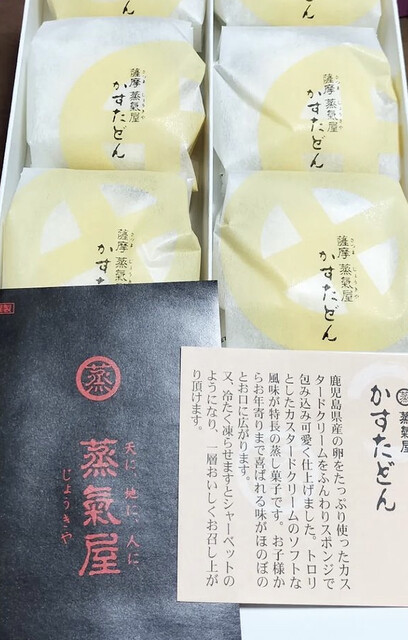 薩摩 蒸氣屋
さつま じょうきや
かすたどん
薩摩 蒸氣屋
さつま じょうきや
かすたどん
薩摩 蒸氣屋
さつま じょうきや
かすたどん
薩摩 蒸氣屋
さつま じょうきや
かすたどん
蒸
天に、地に、人に、
蒸氣屋
じょうきや
蒸 蒸氣屋
かすたどん
鹿児島県産の卵をたっぷり使ったカス
タードクリームをふんわりスポンジで
包み込み可愛く仕上げました。トロリ
としたカスタードクリームのソフトな
風味が特長の蒸し菓子です。お子様か
らお年寄りまで喜ばれる味がほのぼの
とお口に広がります。
又、冷たく凍らせますとシャーベットの
ようになり、一層おいしくお召し上が
り頂けます。